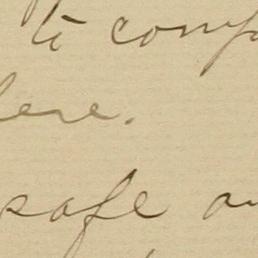 to comp
here.
safe an